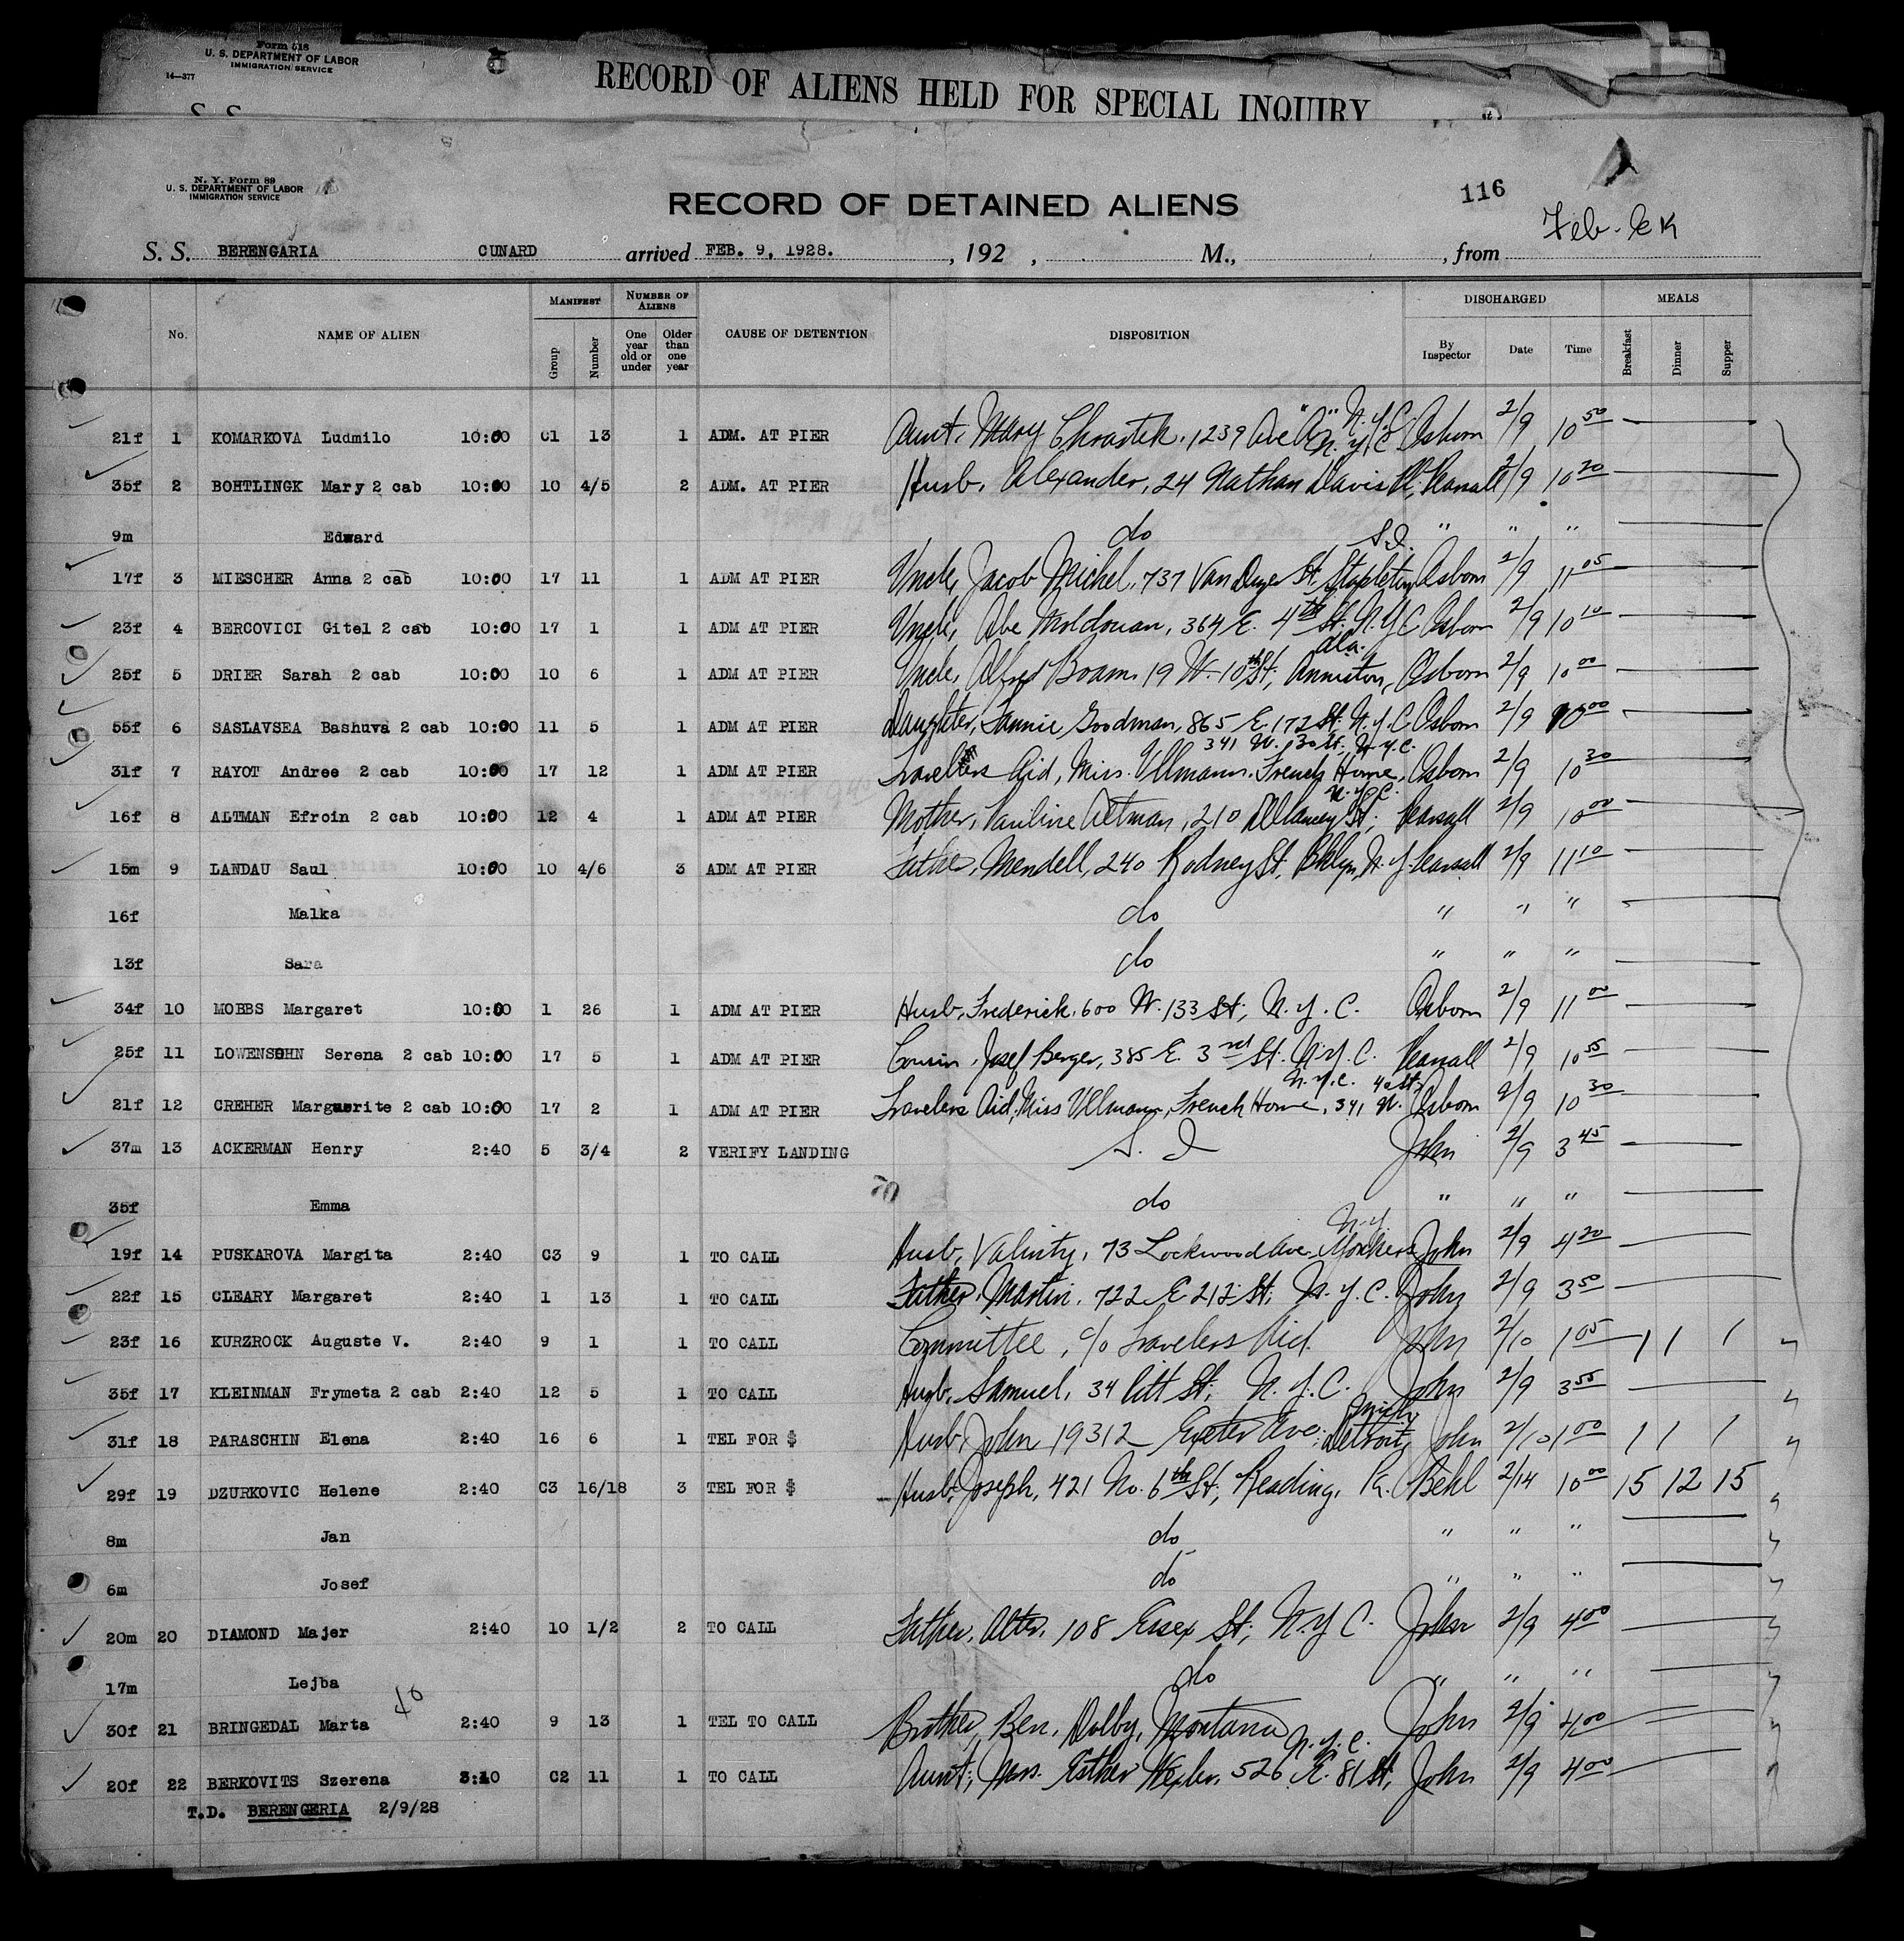 Form 618
U. S. DEPARTMENT OF LABOR
IMMIGRATION SERVICE
14—377
RECORD OF ALIENS HELD FOR SPECIAL INQUIRY
S. S.
N. Y. Form 89
U. S. DEPARTMENT OF LABOR
IMMIGRATION SERVICE
116
RECORD OF DETAINED ALIENS
Feb.
S. S. BERENGARIA CUNARD arrived FEB. 9, 1928. , 192 , M., , from
No. NAME OF ALIEN MANIFEST Group Number NUMBER OF ALIENS One year old or under Older than one year CAUSE OF DETENTION DISPOSITION DISCHARGED By Inspector Date Time MEALS Breakfast Dinner Supper
21f 1 KOMARKOVA Ludmilo 10:00 C1 13 1 ADM. AT PIER Aunt, Mary Chrastek, 1239 Ave "A" N.Y.C. Osborn 2/9 10 50
35f 2 BOHTLINGK Mary 2 cab 10:00 10 4/5 2 ADM. AT PIER Husb, Alexander, 24 Nathan Davis Pl, Pearsall 2/9 10 20
9m Edward do " " "
17f 3 MIESCHER Anna 2 cab 10:00 17 11 1 ADM AT PIER Uncle, Jacob Michel, 737 Van Duzer St, Stapleton S.I. Osborn 2/9 11 05
23f 4 BERCOVICI Gitel 2 cab 10:00 17 1 1 ADM AT PIER Uncle, Abe Moldovan, 364 E. 4th St. N.Y.C Osborn 2/9 10 10
25f 5 DRIER Sarah 2 cab 10:00 10 6 1 ADM AT PIER Uncle, Alfred Boam, 19 W. 10th St, Anniston, Ala. Osborn 2/9 10 00
55f 6 SASLAVSEA Bashuva 2 cab 10:00 11 5 1 ADM AT PIER Daughter, Fannie Goodman, 865 E. 172 St. N.Y.C Osborn 2/9 10 00
31f 7 RAYOT Andree 2 cab 10:00 17 12 1 ADM AT PIER Travellers Aid, Miss. Ullmann. French Home, 341 W. 30 St, N.Y.C. Osborn 2/9 10 30
16f 8 ALTMAN Efroin 2 cab 10:00 12 4 1 ADM AT PIER Mother, Pauline Altman, 210 Delancey St; N.Y.C. Pearsall 2/9 10 00
15m 9 LANDAU Saul 10:00 10 4/6 3 ADM AT PIER Father, Mendell, 240 Rodney St. Bklyn, N.Y. Pearsall 2/9 11 10
16f Malka do " " "
13f Sara do " " "
34f 10 MOBBS Margaret 10:00 1 26 1 ADM AT PIER Husb, Frederick, 600 W. 133 St; N.Y.C. Osborn 2/9 11 00
25f 11 LOWENSOHN Serena 2 cab 10:00 17 5 1 ADM AT PIER Cousin, Josef Berger, 385 E. 3rd St. N.Y.C. Pearsall 2/9 10 55
21f 12 CREHER Marguerite 2 cab 10:00 17 2 1 ADM AT PIER Travelers Aid, Miss Ullmann, French Home, 341 W. 40 St, N.Y.C. Osborn 2/9 10 30
37m 13 ACKERMAN Henry 2:40 5 3/4 2 VERIFY LANDING S. I John 2/9 3 45
70
35f Emma do " " "
19f 14 PUSKAROVA Margita 2:40 C3 9 1 TO CALL Husb, Valinty, 73 Lockwood Ave. Yonkers N.Y. John 2/9 4 20
22f 15 CLEARY Margaret 2:40 1 13 1 TO CALL Father, Martin, 722 E 212 St; N.Y.C. John 2/9 3 50
23f 16 KURZROCK Auguste V. 2:40 9 1 1 TO CALL Committee, c/o Travelers Aid John 2/10 1 05 1 1 1
35f 17 KLEINMAN Frymeta 2 cab 2:40 12 5 1 TO CALL Husb, Samuel, 34 Pitt St; N.Y.C. John 2/9 3 55
31f 18 PARASCHIN Elena 2:40 16 6 1 TEL FOR $ Husb, John 19312 Exeter Ave; Detroit, Mich John 2/10 1 00 1 1 1
29f 19 DZURKOVIC Helene 2:40 C3 16/18 3 TEL FOR $ Husb, Joseph, 421 No. 6th St; Reading, Pa. Behl 2/14 10 00 15 12 15
8m Jan do " " "
6m Josef do " " "
20m 20 DIAMOND Majer 2:40 10 1/2 2 TO CALL Father, Alter, 108 Essex St; N.Y.C. John 2/9 4 00
17m Lejba do " " "
30f 21 BRINGEDAL Marta 2:40 9 13 1 TEL TO CALL Brother, Ben, Dolby, Montana John 2/9 4 00
20f 22 BERKOVITS Szerena 3:10 C2 11 1 TO CALL Aunt, Mrs. Esther Wexler, 526 E. 81 St, N.Y.C. John 2/9 4 00
T.D. BERENGERIA 2/9/28